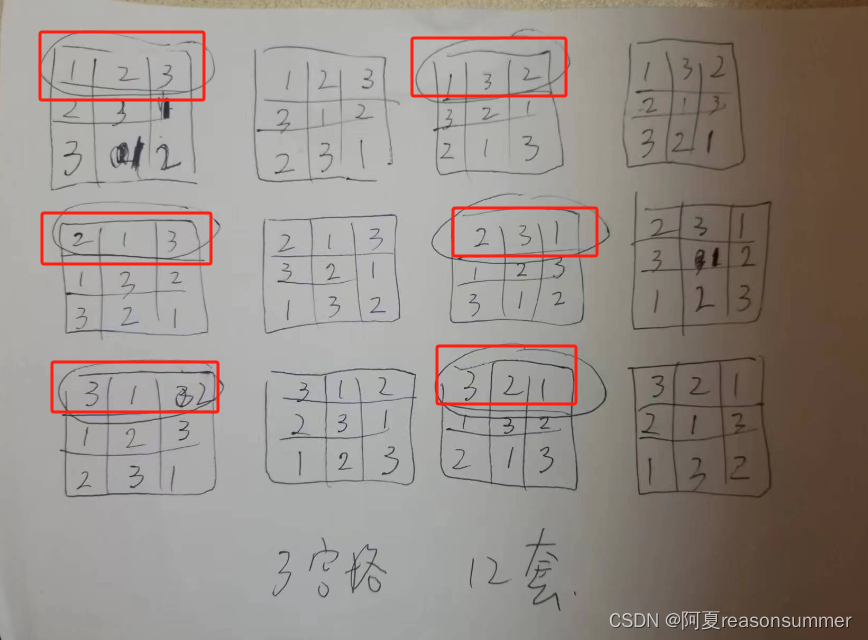 1 2 3
2 3 1
3 1 2
1 2 3
3 1 2
2 3 1
1 3 2
3 2 1
2 1 3
1 3 2
2 1 3
3 2 1
2 1 3
1 3 2
3 2 1
2 1 3
3 2 1
1 3 2
2 3 1
1 2 3
3 1 2
2 3 1
3 1 2
1 2 3
3 1 2
1 2 3
2 3 1
3 1 2
2 3 1
1 2 3
3 2 1
1 3 2
2 1 3
3 2 1
2 1 3
1 3 2
3宫格 12套.
CSDN @阿夏reasonsummer